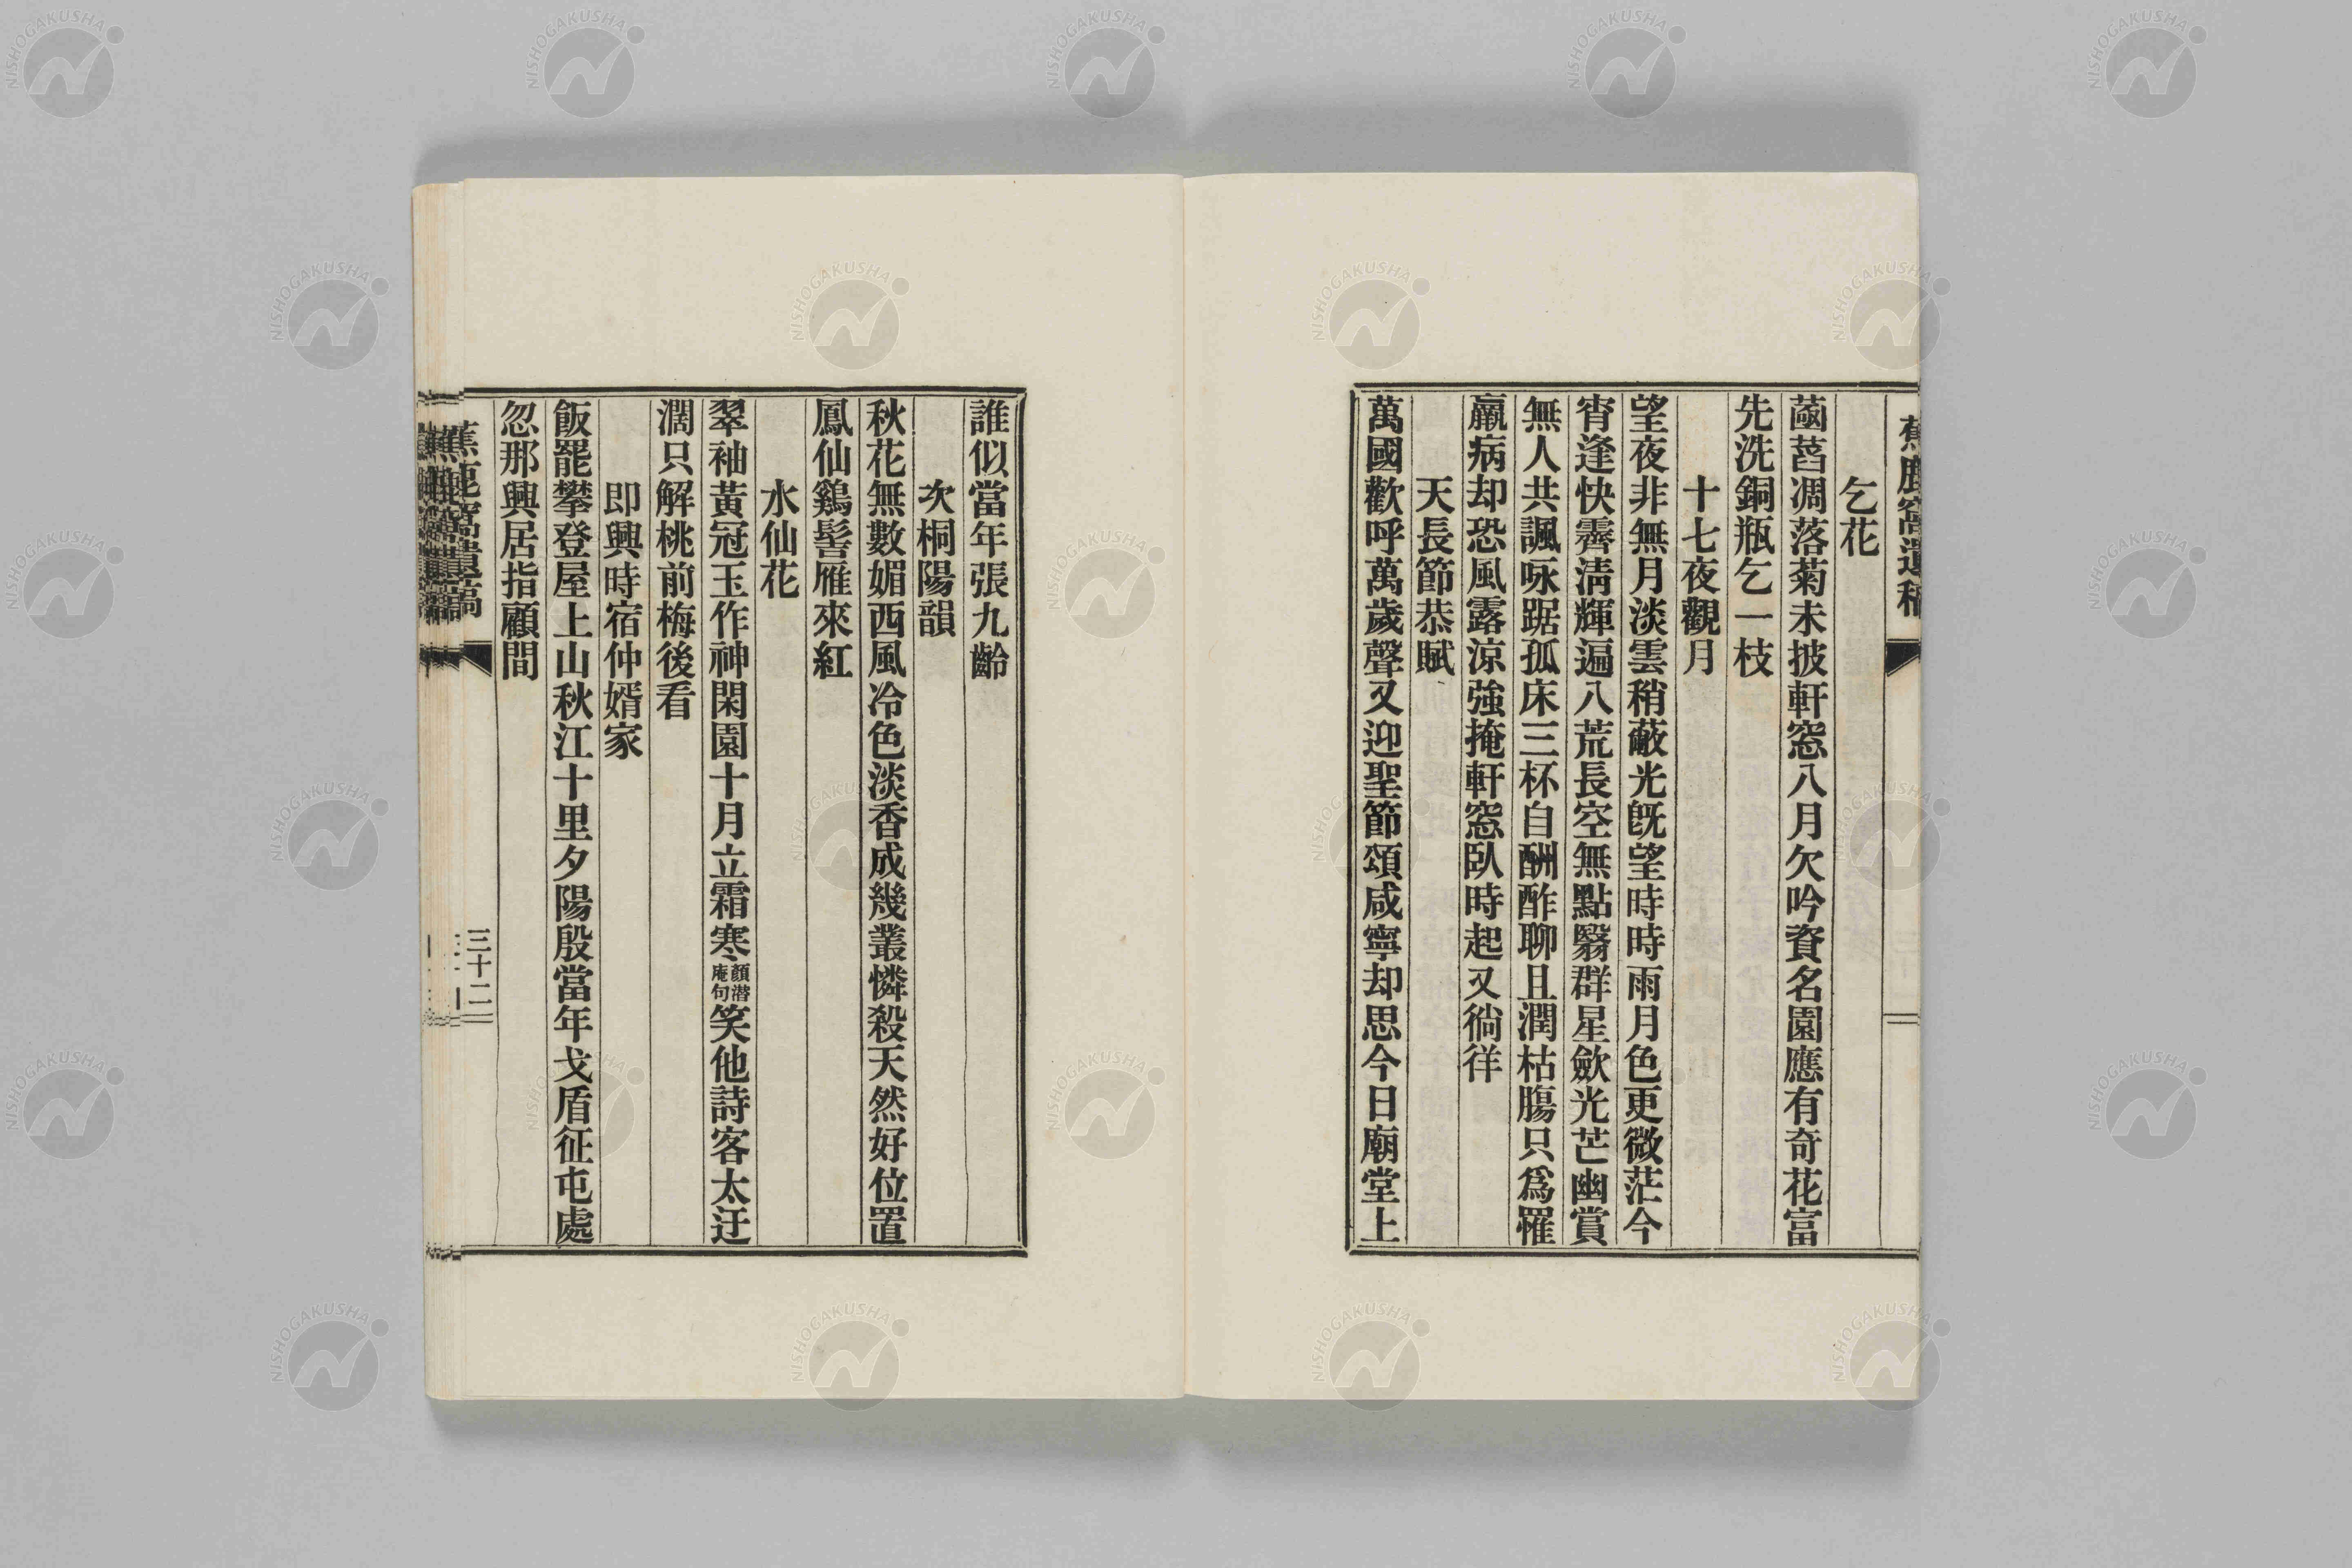 蕉鹿窩遺稿
乞花
菡萏凋落菊未披軒窓八月欠吟資名園應有奇花富
先洗銅瓶乞一枝
十七夜觀月
望夜非無月淡雲稍蔽光旣望時時雨月色更微茫今
宵逢快霽淸輝遍八荒長空無點翳群星歛光芒幽賞
無人共諷咏踞孤床三杯自酬酢聊且潤枯膓只爲罹
羸病却恐風露涼強掩軒窓臥時起又徜徉
天長節恭賦
萬國歡呼萬歲聲又迎聖節頌咸寧却思今日廟堂上
誰似當年張九齡
次桐陽韻
秋花無數媚西風冷色淡香成幾叢憐殺天然好位置
鳳仙鷄髻雁來紅
水仙花
翠袖黃冠玉作神閑園十月立霜寒顏潜庵句笑他詩客太迂
濶只解桃前梅後看
即興時宿仲婿家
飯罷攀登屋上山秋江十里夕陽殷當年戈盾征屯處
忽那興居指顧間
蕉鹿窩遺稿
三十二
NISHOGAKUSHA